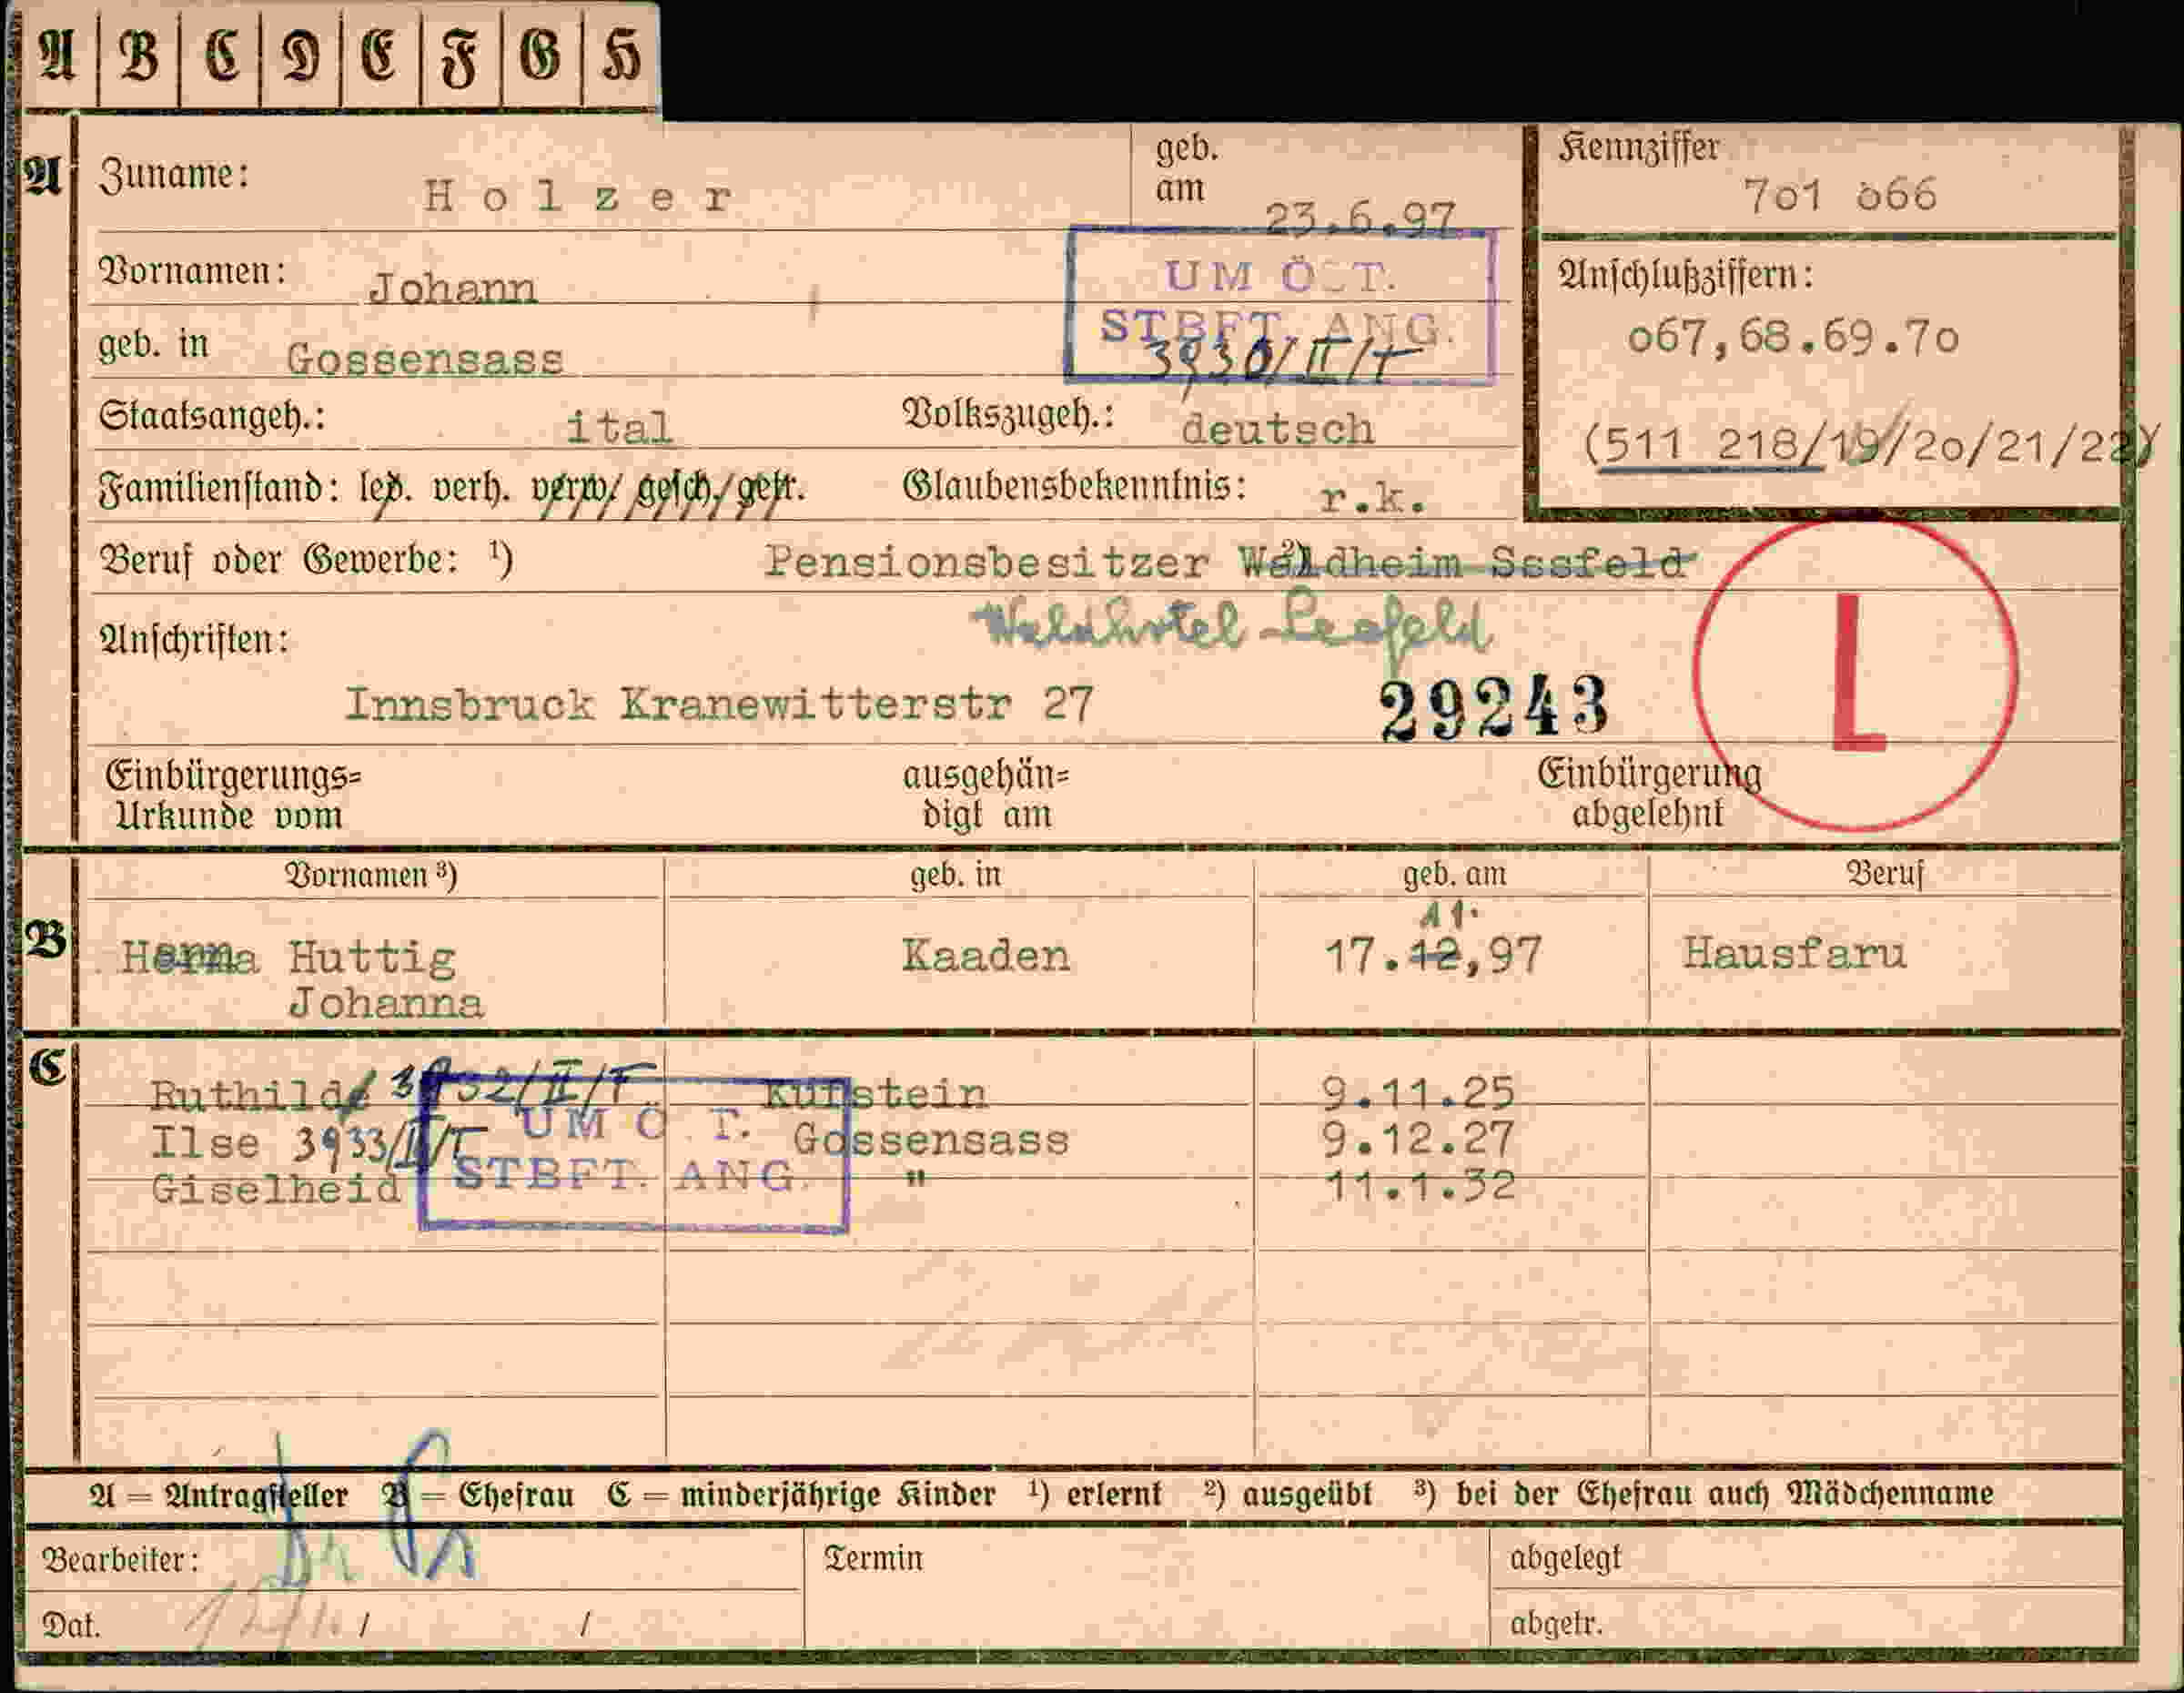 A B C D E F G H
A Zuname: Holzer geb. am 23.6.97 Kennziffer 7o1 o66
Vornamen: Johann UM ÖST. Anschlußziffern:
geb. in Gossensass STBFT. ANG. 3930/II/T o67,68.69.7o
Staatsangeh.: ital Volkszugeh.: deutsch (511 218/19/2o/21/22)
Familienstand: led. verh. verw/ gesch./getr. Glaubensbekenntnis: r.k.
Beruf oder Gewerbe: ¹) Pensionsbesitzer ²) Waldheim Sssfeld
Anschriften: Waldhotel-Seefeld
Innsbruck Kranewitterstr 27 29243 L
Einbürgerungs= ausgehän= Einbürgerung
Urkunde vom digt am abgelehnt
Vornamen ³) geb. in geb. am Beruf
11.
B Huttig Kaaden 17.12,97 Hausfaru
Johanna
C Ruthild 3932/II/T Kufstein 9.11.25
Ilse 3933/II/T UM Ö.T. Gossensass 9.12.27
Giselheid STBFT. ANG. " 11.1.32
A = Antragsteller B = Ehefrau C = minderjährige Kinder ¹) erlernt ²) ausgeübt ³) bei der Ehefrau auch Mädchenname
Bearbeiter: Termin abgelegt
Dat. / / abgetr.